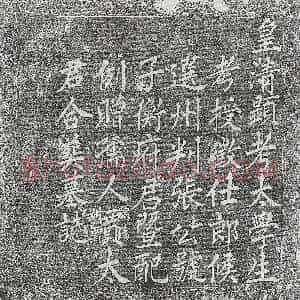 皇清顯考太學生
考授徵仕郎候
選州判張公號
子衡府君暨配
例贈孺人賈太
君合塟墓誌